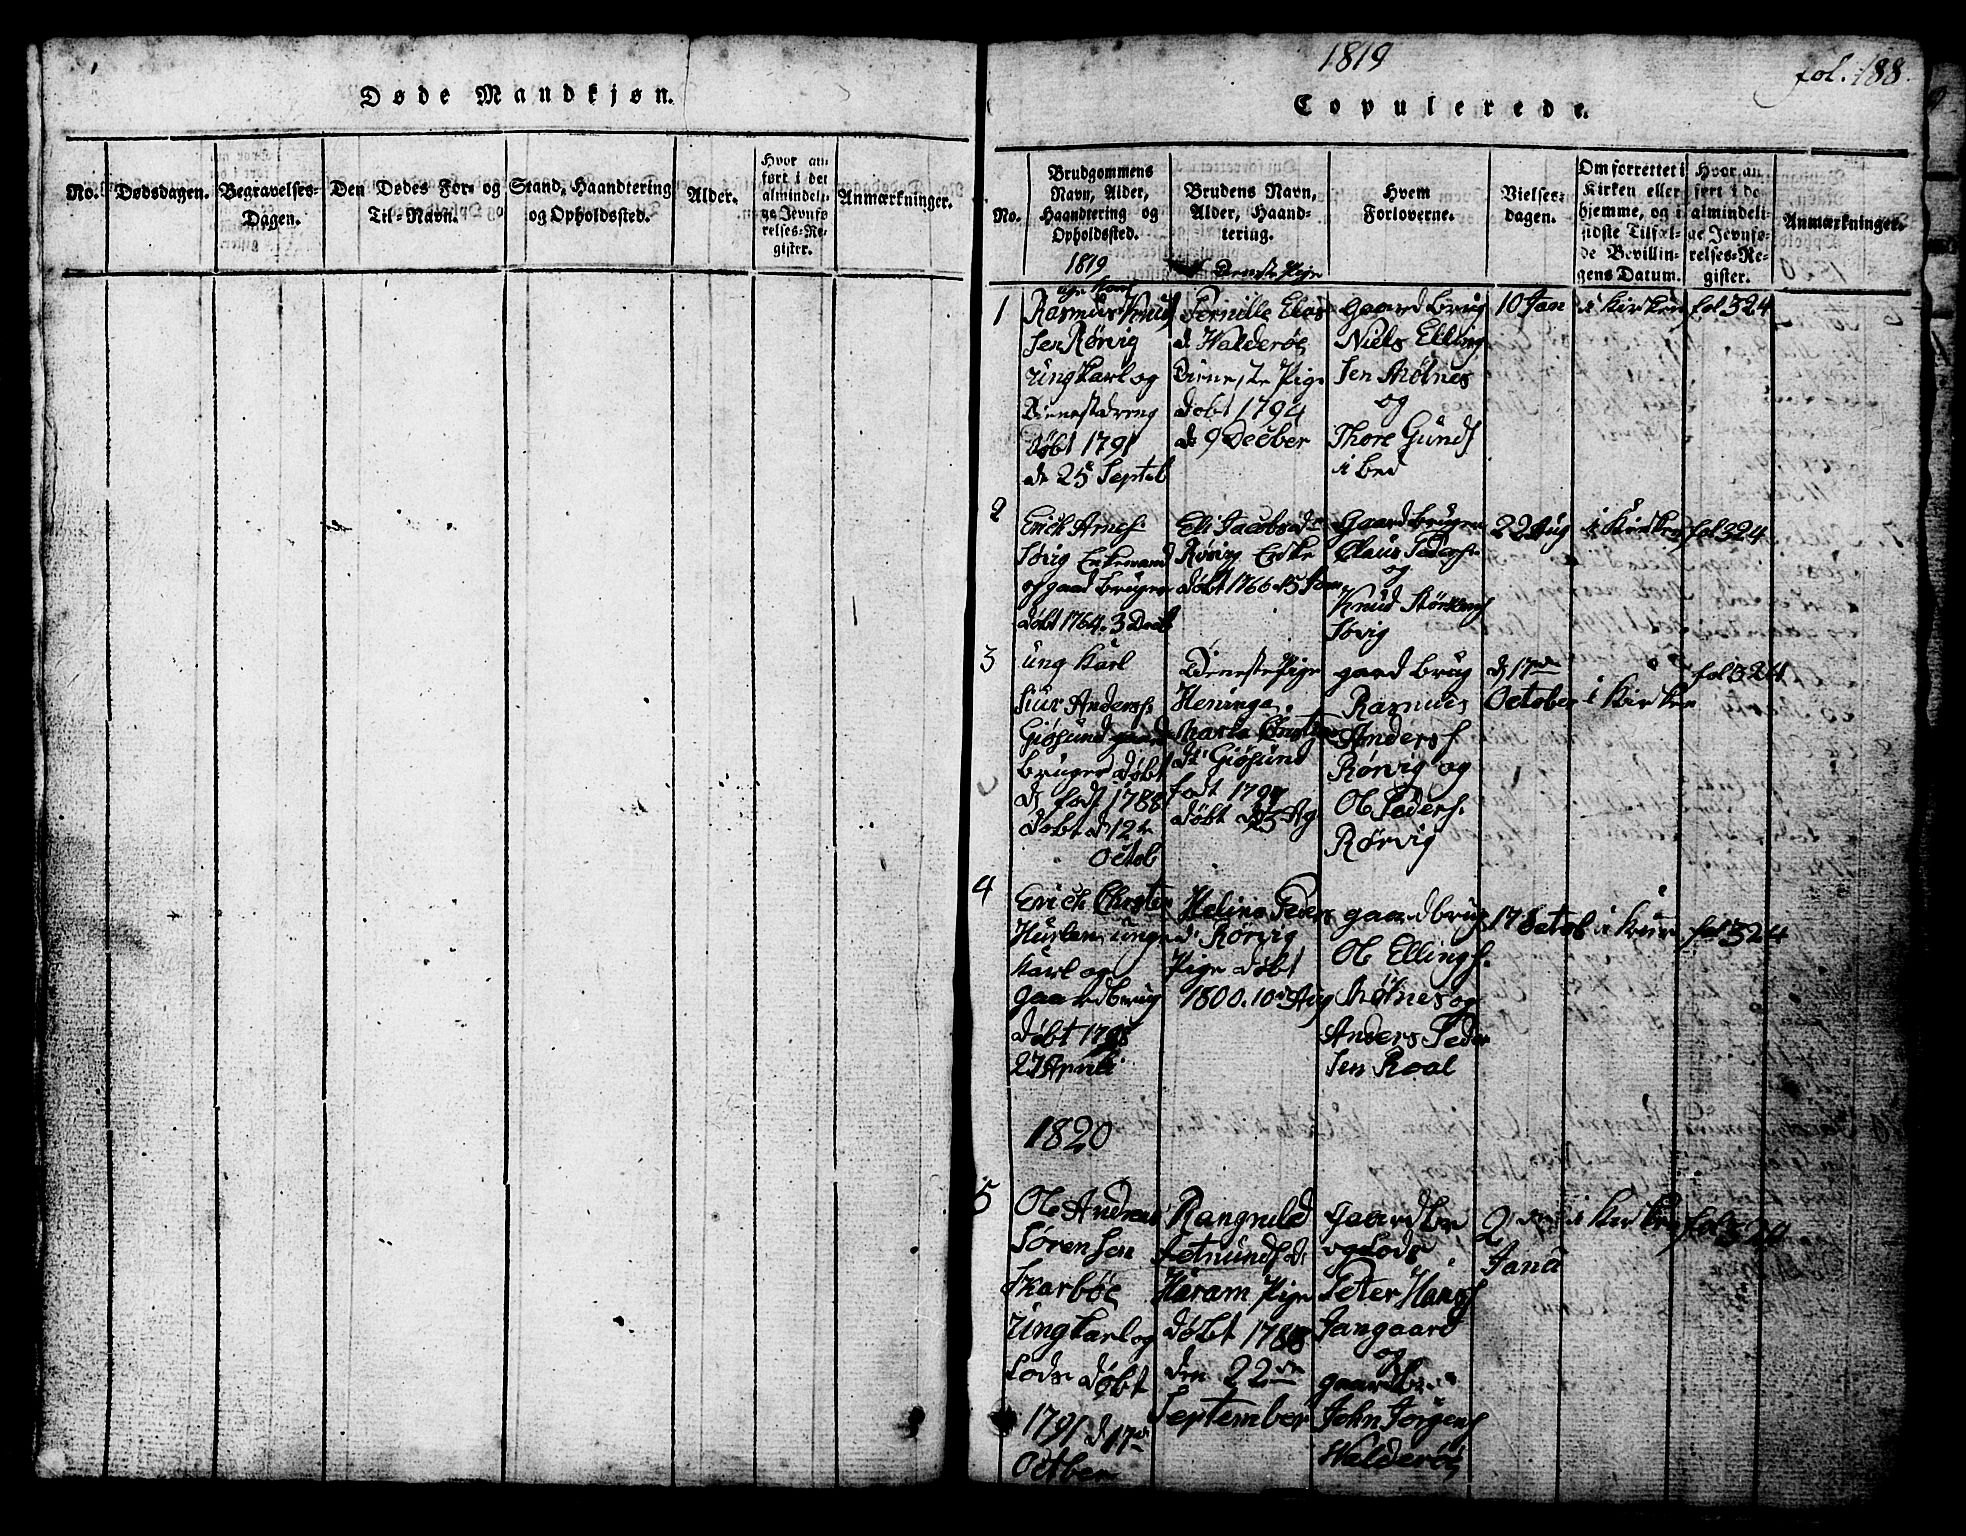 Døde Mandkjøn.
No.
Dødsdagen.
Begravelses-
Dagen.
Den Dødes For- og
Til-Navn.
Stand, Haandtering
og Opholdssted.
Alder.
Hvor an-
ført i det
almindeli-
ge Jevnfø-
relses-Re-
gister.
Anmærkninger.
1819
fol. 188.
Copulerede.
No.
Brudgommens
Navn, Alder,
Haandtering og
Opholdssted.
Brudens Navn,
Alder, Haand-
tering.
Hvem
Forloverne.
Vielses-
dagen.
Om forrettet i
Kirken eller
hjemme, og i
sidste Tilfæl-
de Bevillin-
gens Datum.
Hvor an-
ført i de
almindeli-
ge Jevnfø-
relses-Re-
gister.
Anmærkninger.
1819
1
Rasmus Knud
sen Rørvig
ungkarl og
Dienestdreng
døbt 1791
d. 25 Septeb
Pernille Elias
d. Walderøe
Dieneste Pige
døbt 1794
d. 9 Decber
Gaardbrug
Niels Elling
sen Molnes
og
Thore Gunds
10 Jan
i Kirken
fol 324
2
Erich Arnes.
Søvig Enkemand
og gaardbruger
døbt 1764. 3 Decb
Eli Jacobsd
Rørvig Enke
døbt 1766
Gaardbruger
Claus Peders.
og
Knud
Søvig
22 Aug
i Kirken
fol 324
3
ung Karl
Siur Anderss.
Giøsund
bruger døbt
d. født 1788
døbt d 12te
Octob
Dieneste Pige
Heninga
d. Giøsund
født
døbt
gaardbrug
Rasmus
Anderss
Rørvig og
Ole Peders.
Rørvig
d 17de
October
i Kirken
fol 324
4
Erich Christen
ung
Karl og
gaardbrug
døbt 1795
27 Aprili
Heline Peders
d. Rørvig
Pige døbt
1800. 10d Aug
gaardbrug
Ole Ellings.
Molnes og
Anders Peder
sen Roal
17 Octob
i Kir
fol 324
1820
5
Ole Andreas
Sørensen
Skarbøe
ungkarl og
Lods døbt
1791 d 17de
Octber
Rangnild
d.
Haram Pige
døbt 1788
den 22de
September
Gaardbr
og Lods
Peter Hanss
Gangaard
og
gaardbr
John Jørgens
Walderøe
2
Janu
i Kirken